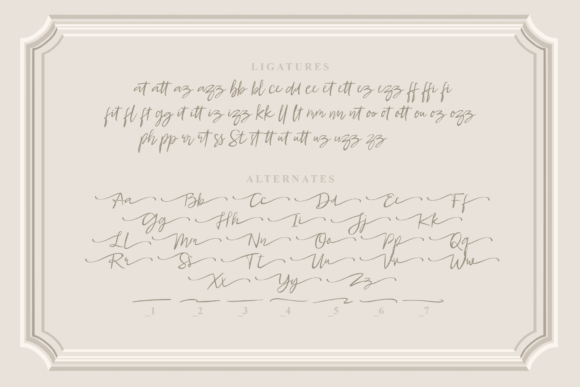 LIGATURES
at att az azz bb bl cc dd ee et ett ez ezz ff ffi fi
fft fl ft gg it itt iz izz kk ll lt mm nn nt oo ot ott ou oz ozz
ph pp rr rt ss St tt tt ut utt uz uzz zz
ALTERNATES
Aa Bb Cc Dd Ee Ff
Gg Hh Ii Jj Kk
Ll Mm Nn Oo Pp Qq
Rr Ss Tt Uu Vv Ww
Xx Yy Zz
_1 _2 _3 _4 _5 _6 _7